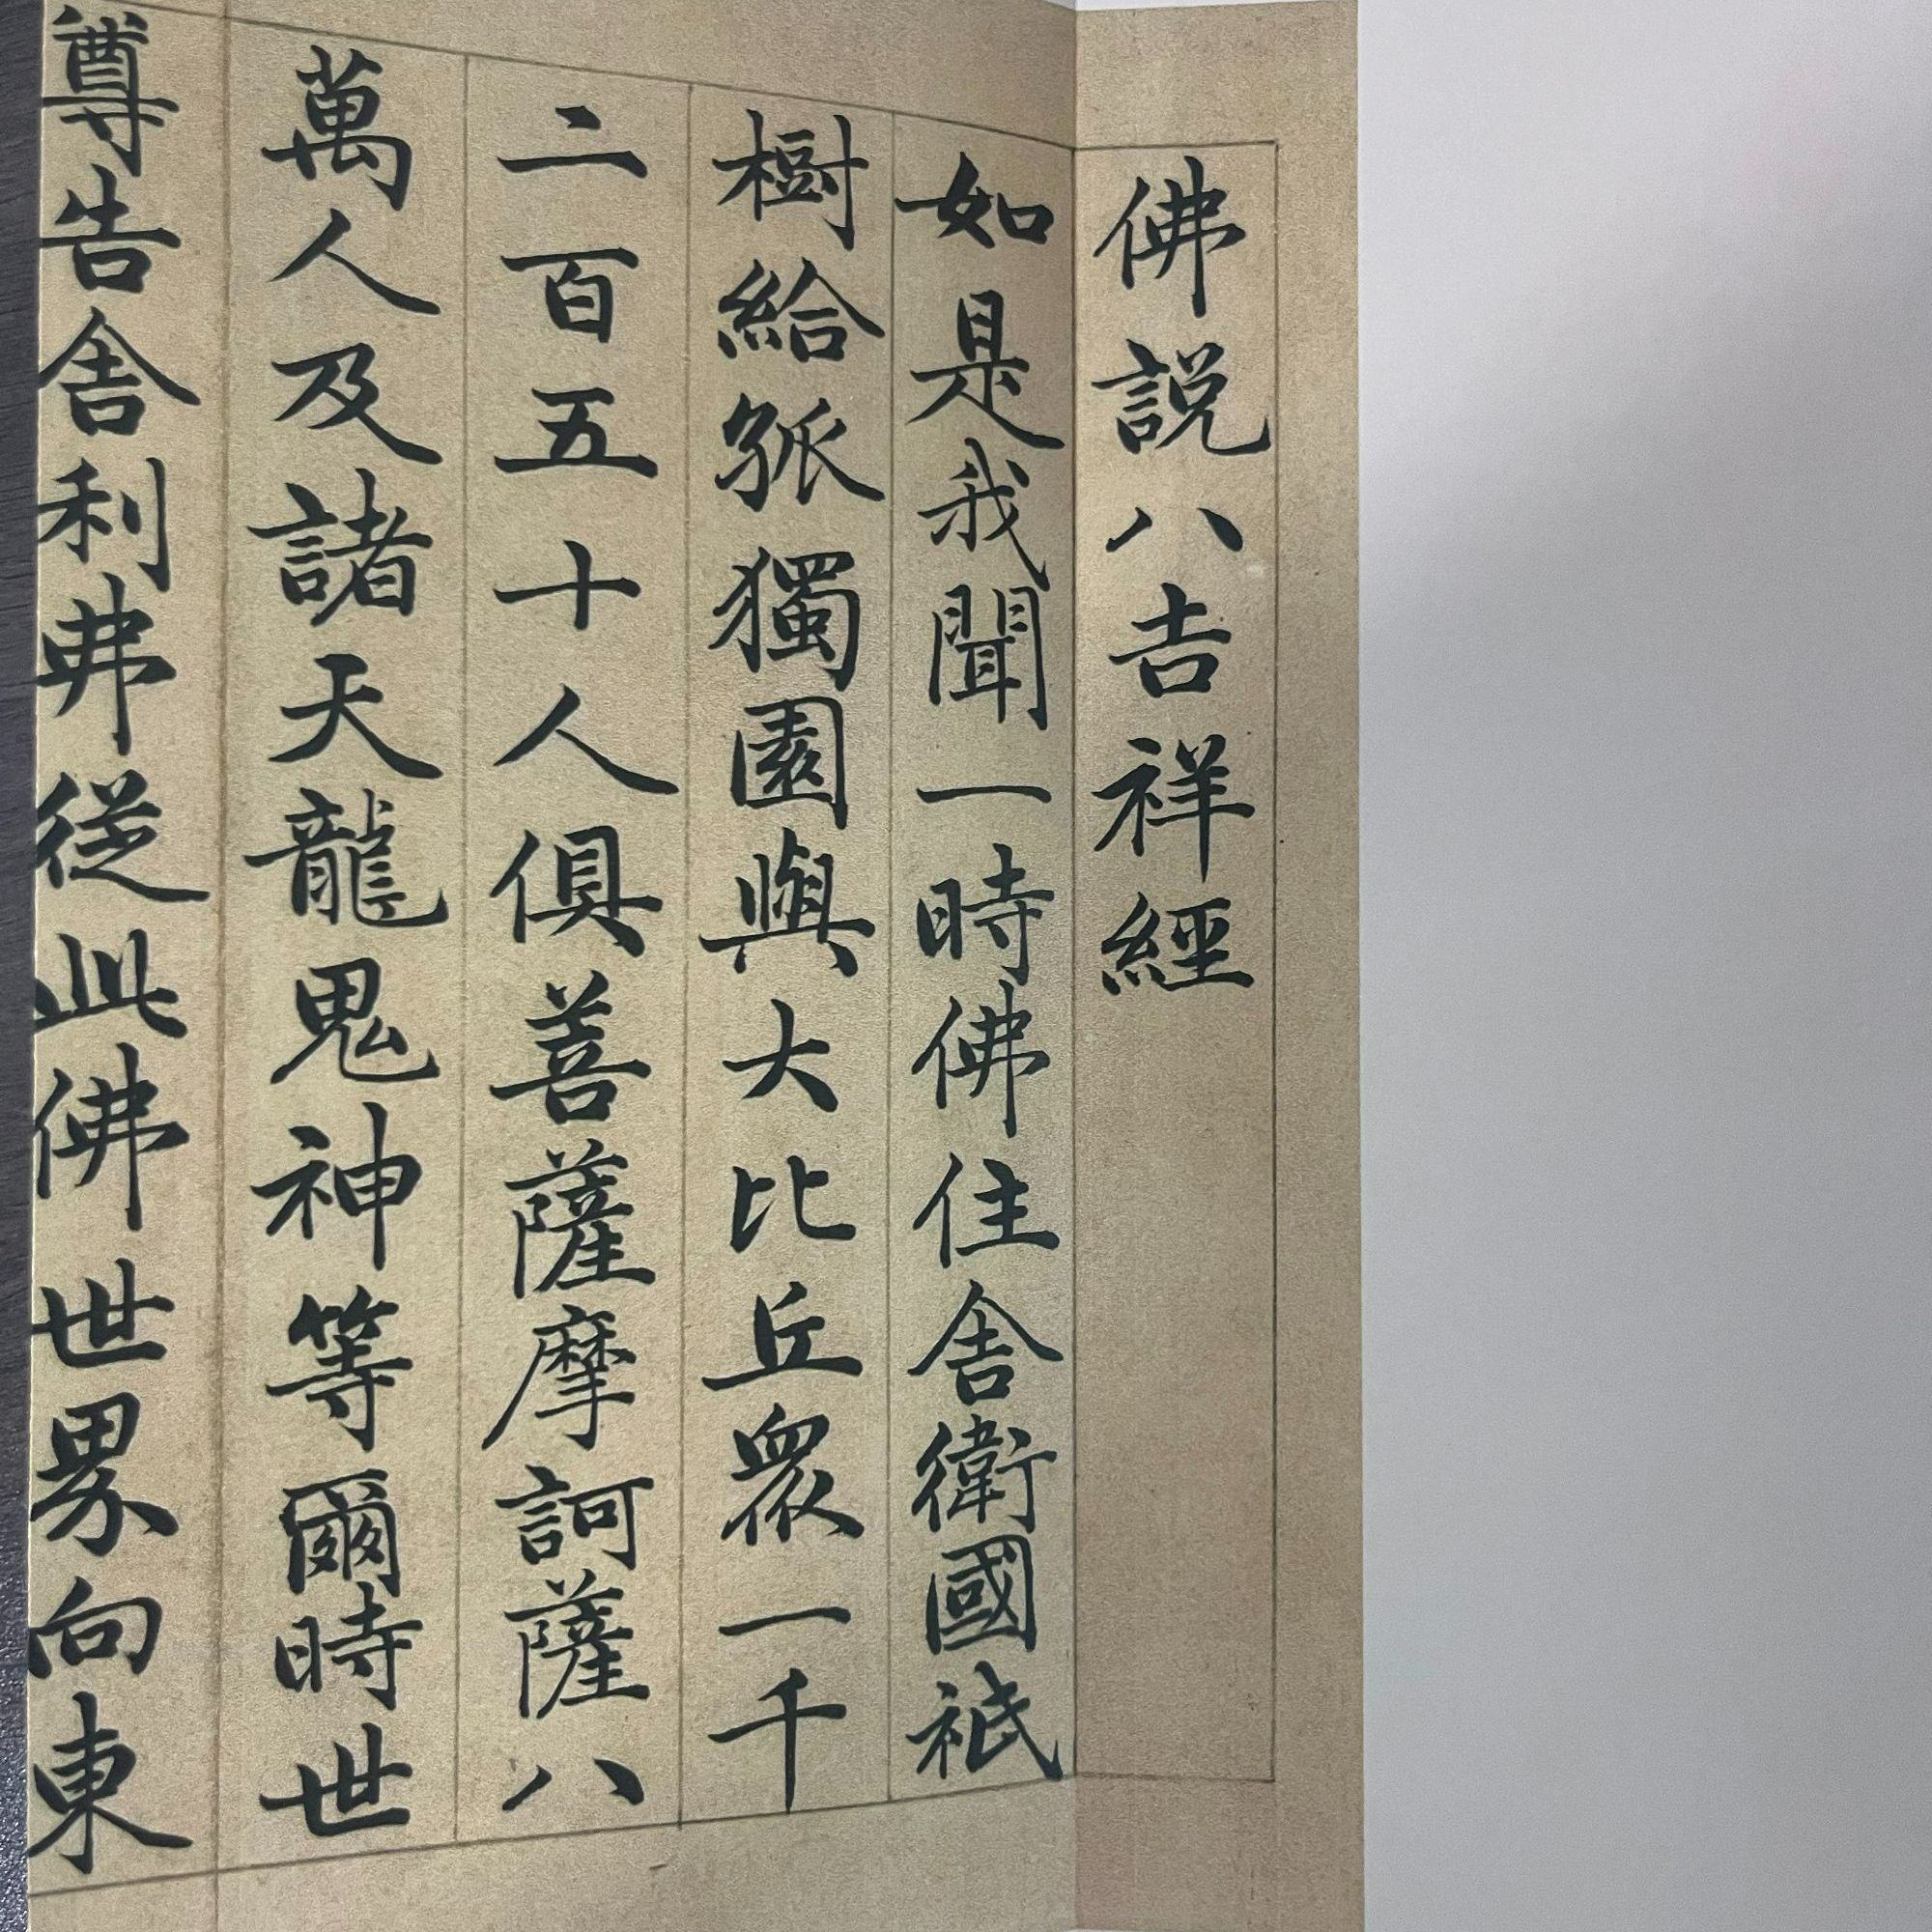 佛説八吉祥經
如是我聞一時佛住舍衛國祇
樹給孤獨園與大比丘衆一千
二百五十人俱菩薩摩訶薩八
萬人及諸天龍鬼神等爾時世
尊告舍利弗從此佛世界向東